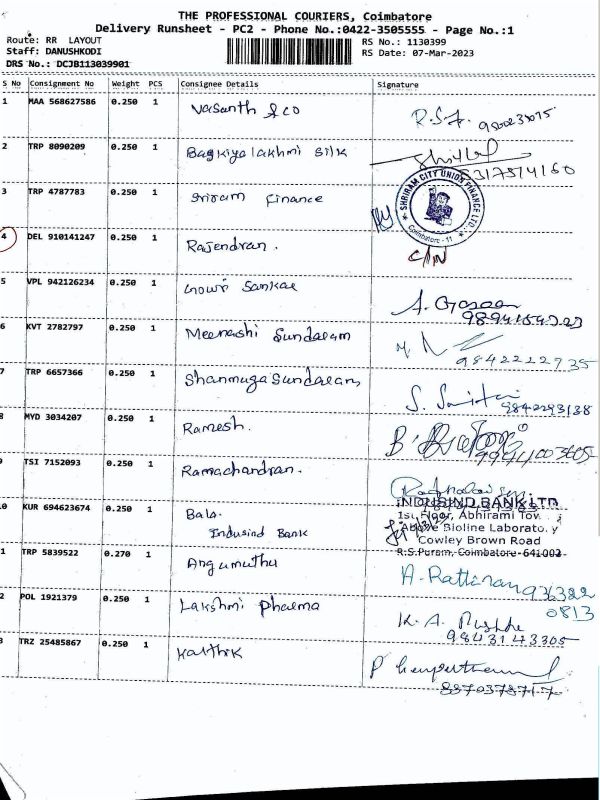 THE PROFESSIONAL COURIERS, Coimbatore
Delivery Runsheet - PC2 - Phone No.:0422-3505555 - Page No.:1
Route: RR LAYOUT
RS No.: 1130399
Staff: DANUSHKODI
RS Date: 07-Mar-2023
DRS No.: DCJB113039901
S No Consignment No Weight PCS Consignee Details Signature
1 MAA 568627586 0.250 1 Vasanth & co
R.S.
2 TRP 8090209 0.250 1 Bagkiyalakhmi silk
3 TRP 4787783 0.250 1 Sriram Finance
SHRIRAM CITY UNION FINANCE LTD.
Coimbatore - 11
4 DEL 910141247 0.250 1 Rajendran.
C/N
5 VPL 942126234 0.250 1 Gowri Sankar
6 KVT 2782797 0.250 1 Meenashi Sundaram
9842222735
7 TRP 6657366 0.250 1 Shanmugasundaram
S.
9842293138
8 MYD 3034207 0.250 1 Ramesh.
B.
9944003605
9 TSI 7152093 0.250 1 Ramachandran.
10 KUR 694623674 0.250 1 Bala.
Indusind Bank
INDUSIND BANK LTD
1st Floor, Abhirami Tow
Above Bioline Laboratory
Cowley Brown Road
R.S.Puram, Coimbatore-641002
1 TRP 5839522 0.270 1 Angumuthu
A. Rattinan 936322
0813
2 POL 1921379 0.250 1 Lakshmi pharma
K. A.
9843143305
3 TRZ 25485867 0.250 1 Karthik
P
8870378717